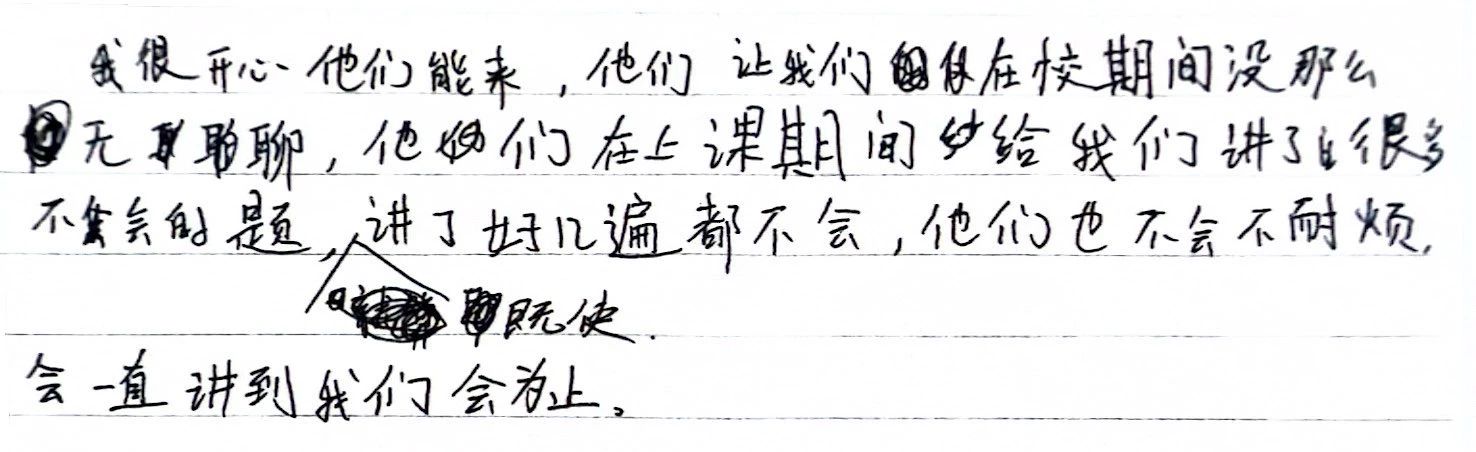 我很开心他们能来，他们让我们在校期间没那么
无聊，他们在上课期间给我们讲了很多
不会的题，讲了好几遍都不会，他们也不会不耐烦，
既使
会一直讲到我们会为止。